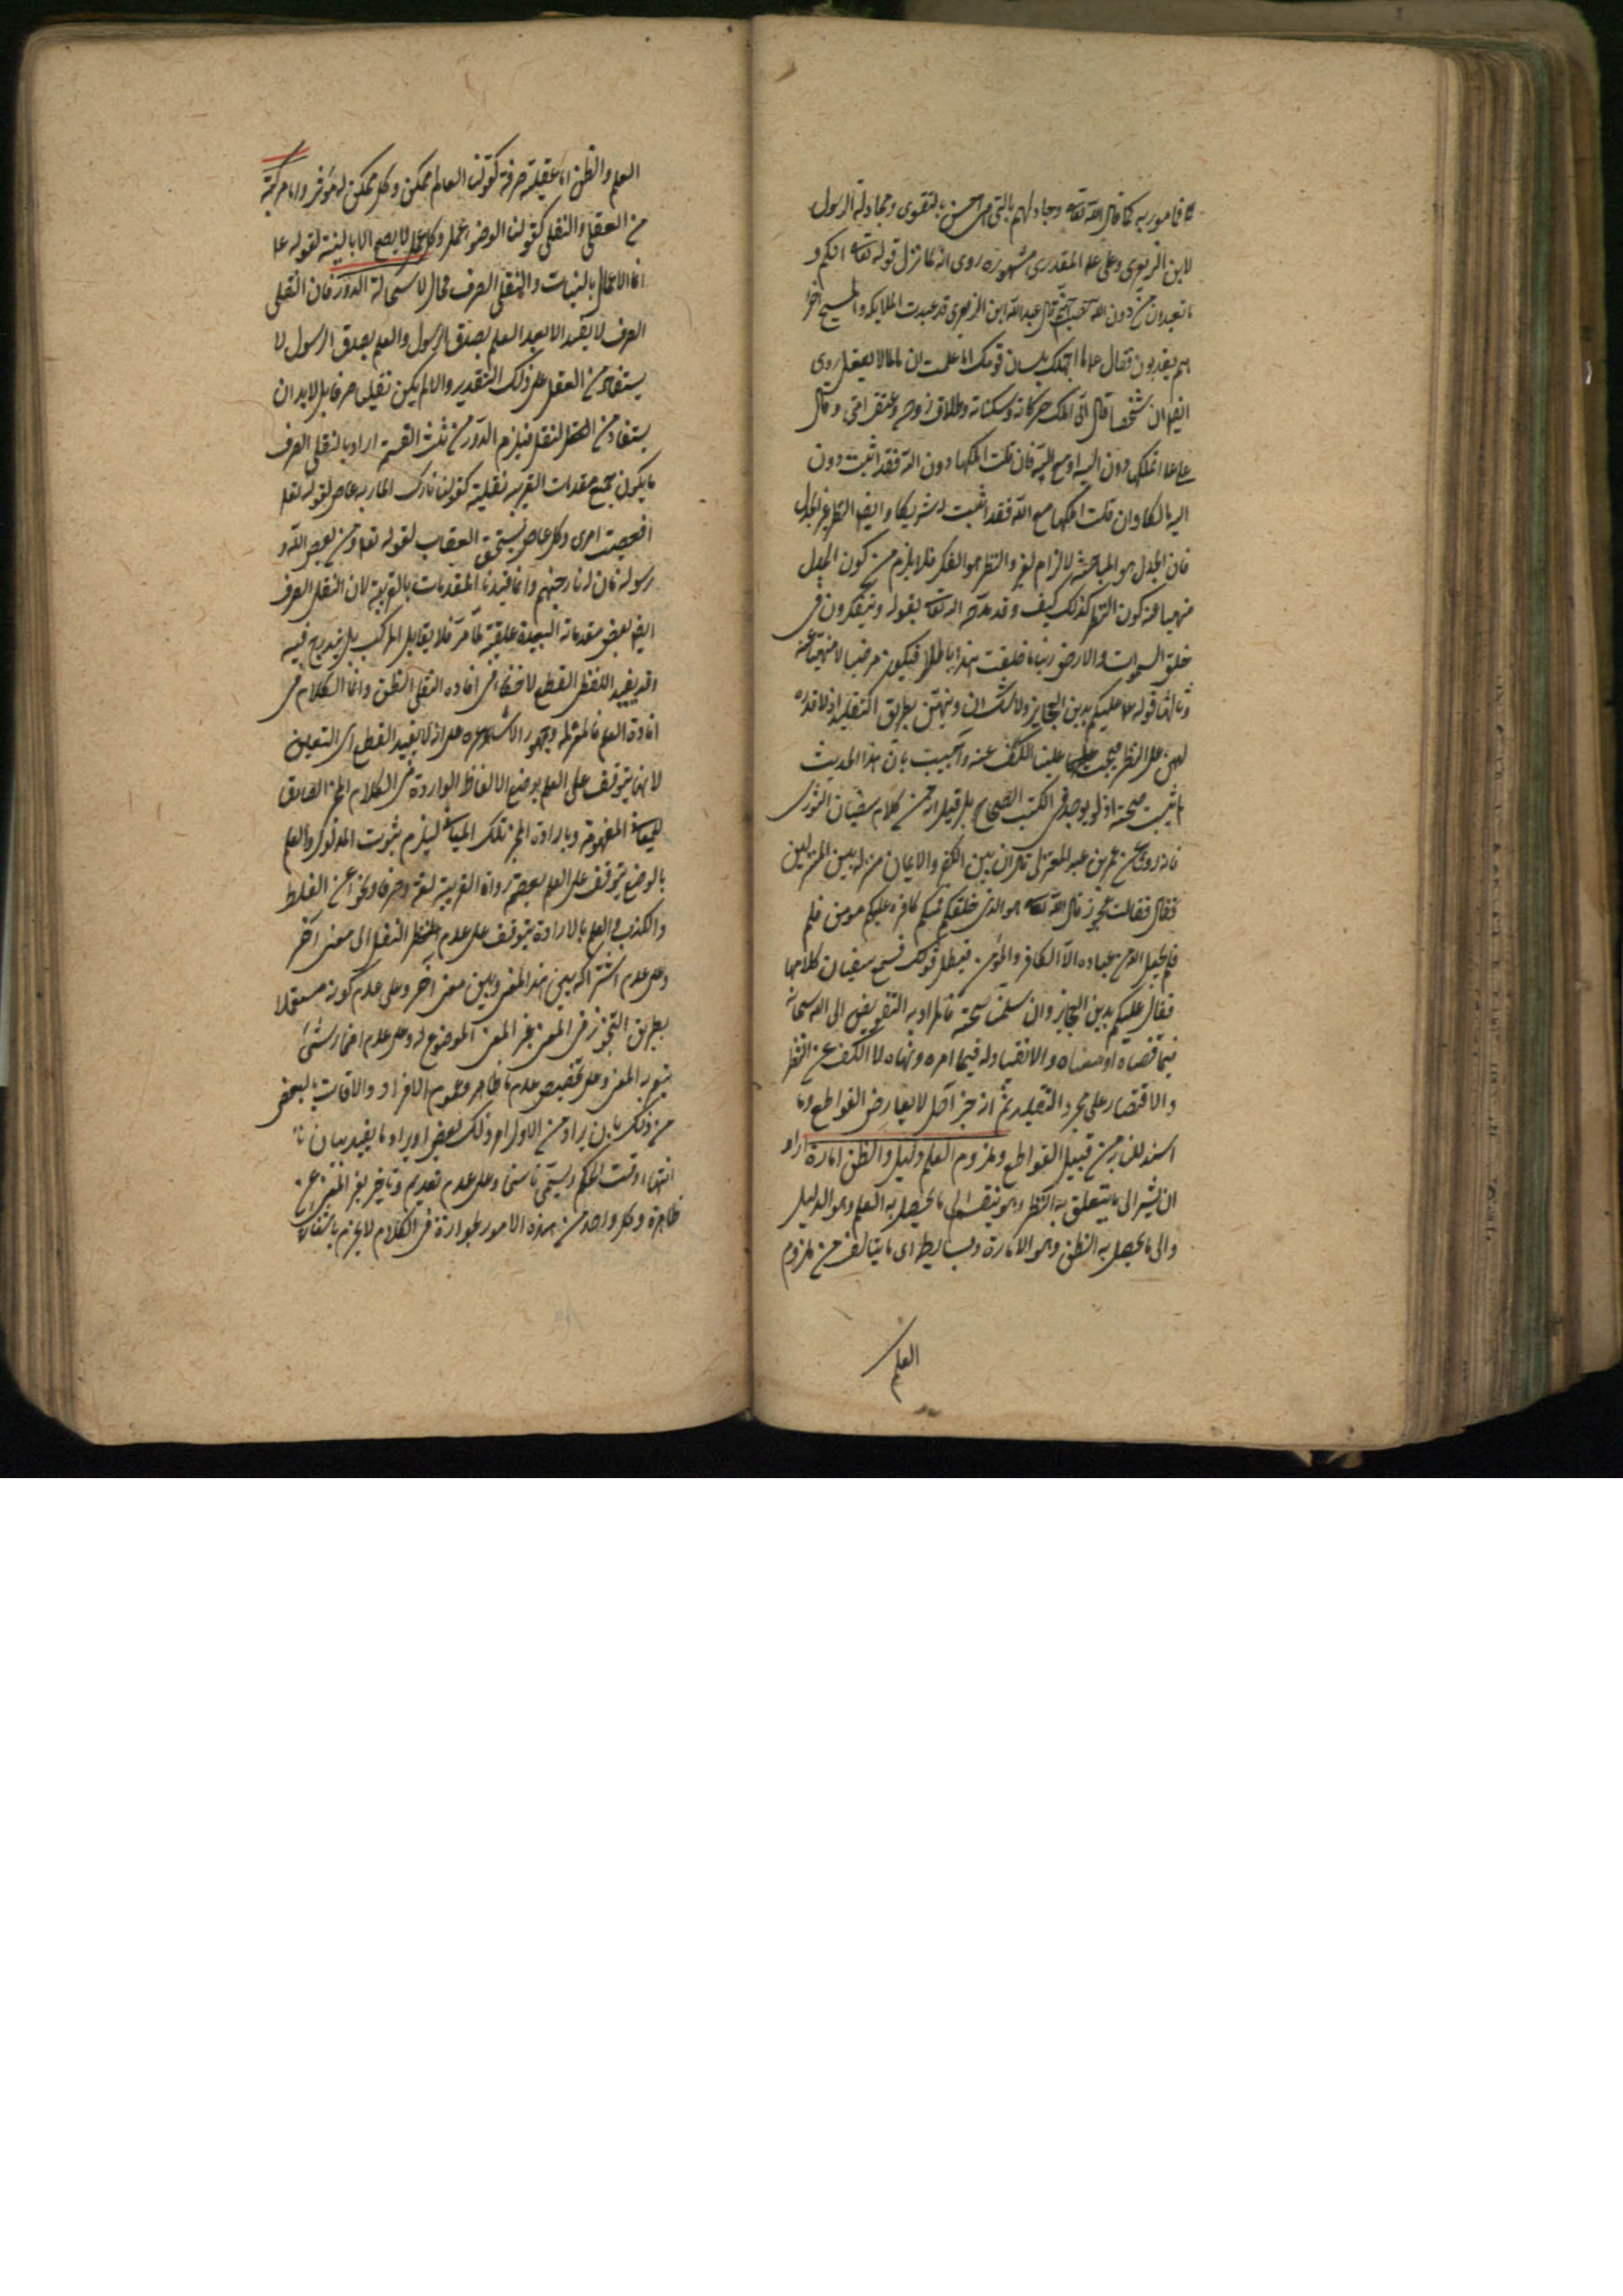 كما قال الله تعالى وجادلهم بالتي هي احسن بالتقوى ومجادلة الرسول
لابن الزبعرى وعلى المقدرى مشهورة روى انه لما نزل قوله تعالى انكم و
ما تعبدون من دون الله حصب جهنم قال عبد الله ابن الزبعرى قد عبدت الملائكة والمسيح
هم يعذبون فقال ما اجهلك بلسان قومك اما علمت ان ما لما لا يعقل روى
ايضا ان شخصا قال انى املك حركاته وسكناته وطلاق زوجه وعتق امتى وقال
على اتملكها دون الله او مع الله فان قلت املكها دون الله فقد اثبت دون
الله مالكا وان قلت املكها مع الله فقد اثبت له شريكا وايضا النظر غير الجدل
فان الجدل هو المباحثة لالزام الغير والنظر هو الفكر فلا يلزم من كون الجدل
منهيا عنه كون النظر كذلك كيف وقد مدحه الله تعالى بقوله ويتفكرون في
خلق السموات والارض ربنا ما خلقت هذا باطلا فيكون مرضيا لا منهيا عنه
وثالثها قوله عليكم بدين العجايز ولا شك ان دينهن بطريق التقليد اذ لا قدرة
لهن على النظر فيجب علينا الكف عنه واجيب بان هذا الحديث
ما ثبت صحته اذ لم يوجد في الكتب الصحاح بل قيل انه من كلام سفيان الثورى
فانه روى ان عمر بن عبيد المعتزلى قال ان بين الكفر والايمان منزلة بين المنزلتين
فقال فقالت عجوز قال الله تعالى هو الذى خلقكم فمنكم كافر ومنكم مومن فلم
فلم يجعل الله من عباده الا الكافر والمؤمن فبطل قولك فسمع سفيان كلامها
فقال عليكم بدين العجايز وان سلمنا صحته فالمراد به التفويض الى الله سبحانه
فيما قضاه او امضاه والانقياد له فيما امره ونهاه لا الكف عن النظر
والاقتصار على مجرد التقليد ثم انه خبر آحاد لا يعارض القواطع وما
استدللنا به من قبيل القواطع وملزوم العلم دليل والظن امارة اراد
ان يشير الى ما يتعلق به النظر وهو ينقسم الى ما يحصل به العلم وهو الدليل
والى ما يحصل به الظن وهو الامارة وبسايطه اى ما يتالف من ملزوم
العلم
العلم والظن اما عقلية صرفة كقولنا العالم ممكن وكل ممكن له مؤثر واما مركبة
من العقلى والنقلى كقولنا الوضوء عمل وكل عمل لا يصح الا بالنية لقوله
انما الاعمال بالنيات والنقلى الصرف محال لاستحالة الدور فان النقلى
الصرف لا يفيد الا بعد العلم بصدق الرسول والعلم بصدق الرسول لا
يستفاد من العقل على ذلك التقدير والا لم يكن نقليا صرفا بل لا بد ان
يستفاد من النقل فيلزم الدور من ثلث القسمة اراد بالنقلى الصرف
ما يكون جميع مقدمات القريبة نقلية كقولنا تارك المامور به عاص لقوله تعالى
افعصيت امرى وكل عاص يستحق العقاب لقوله تعالى ومن يعص الله و
رسوله فان له نار جهنم وانما قيدنا المقدمات بالقريبة لان النقلى الصرف
ايضا بعض مقدماته البعيدة عقلية كما مر فلا يقابل المركب بل يندرج فيه
وقد يفيد اللفظى القطع لا خفاء فى افادة النقل الظن وانما الكلام فى
افادة العلم فالمعتزلة وجمهور الاشاعرة على انه لا يفيد القطع اى اليقين
لانها يتوقف على العلم بوضع الالفاظ الواردة فى الكلام المخبر الصادق
للمعانى المفهومة وبارادة المخبر تلك المعانى ليلزم ثبوت المدلول والعلم
بالوضع يتوقف على العلم بعصمة رواة العربية لغة وصرفا ونحوا عن الغلط
والكذب والعلم بالارادة يتوقف على عدم النقل الى معنى آخر
وعلى عدم اشتراكه بين هذا المعنى وبين معنى آخر وعلى عدم كونه مستعملا
بطريق التجوز فى المعنى غير المعنى الموضوع له وعلى عدم اضمار شئ
يتغير به المعنى وعلى عدم تخصيص ما ظاهره عموم الافراد والاوقات بالبعض
من ذلك بان يراد من الاول ذلك البعض او يراد ما يفيد بيان
انتهاء وقت الحكم ويسمى ناسخا وعلى عدم تقديم وتاخير يغير المعنى عن
ظاهره وكل واحد من هذه الامور لجوازه فى الكلام لا يجزم بانتفائه